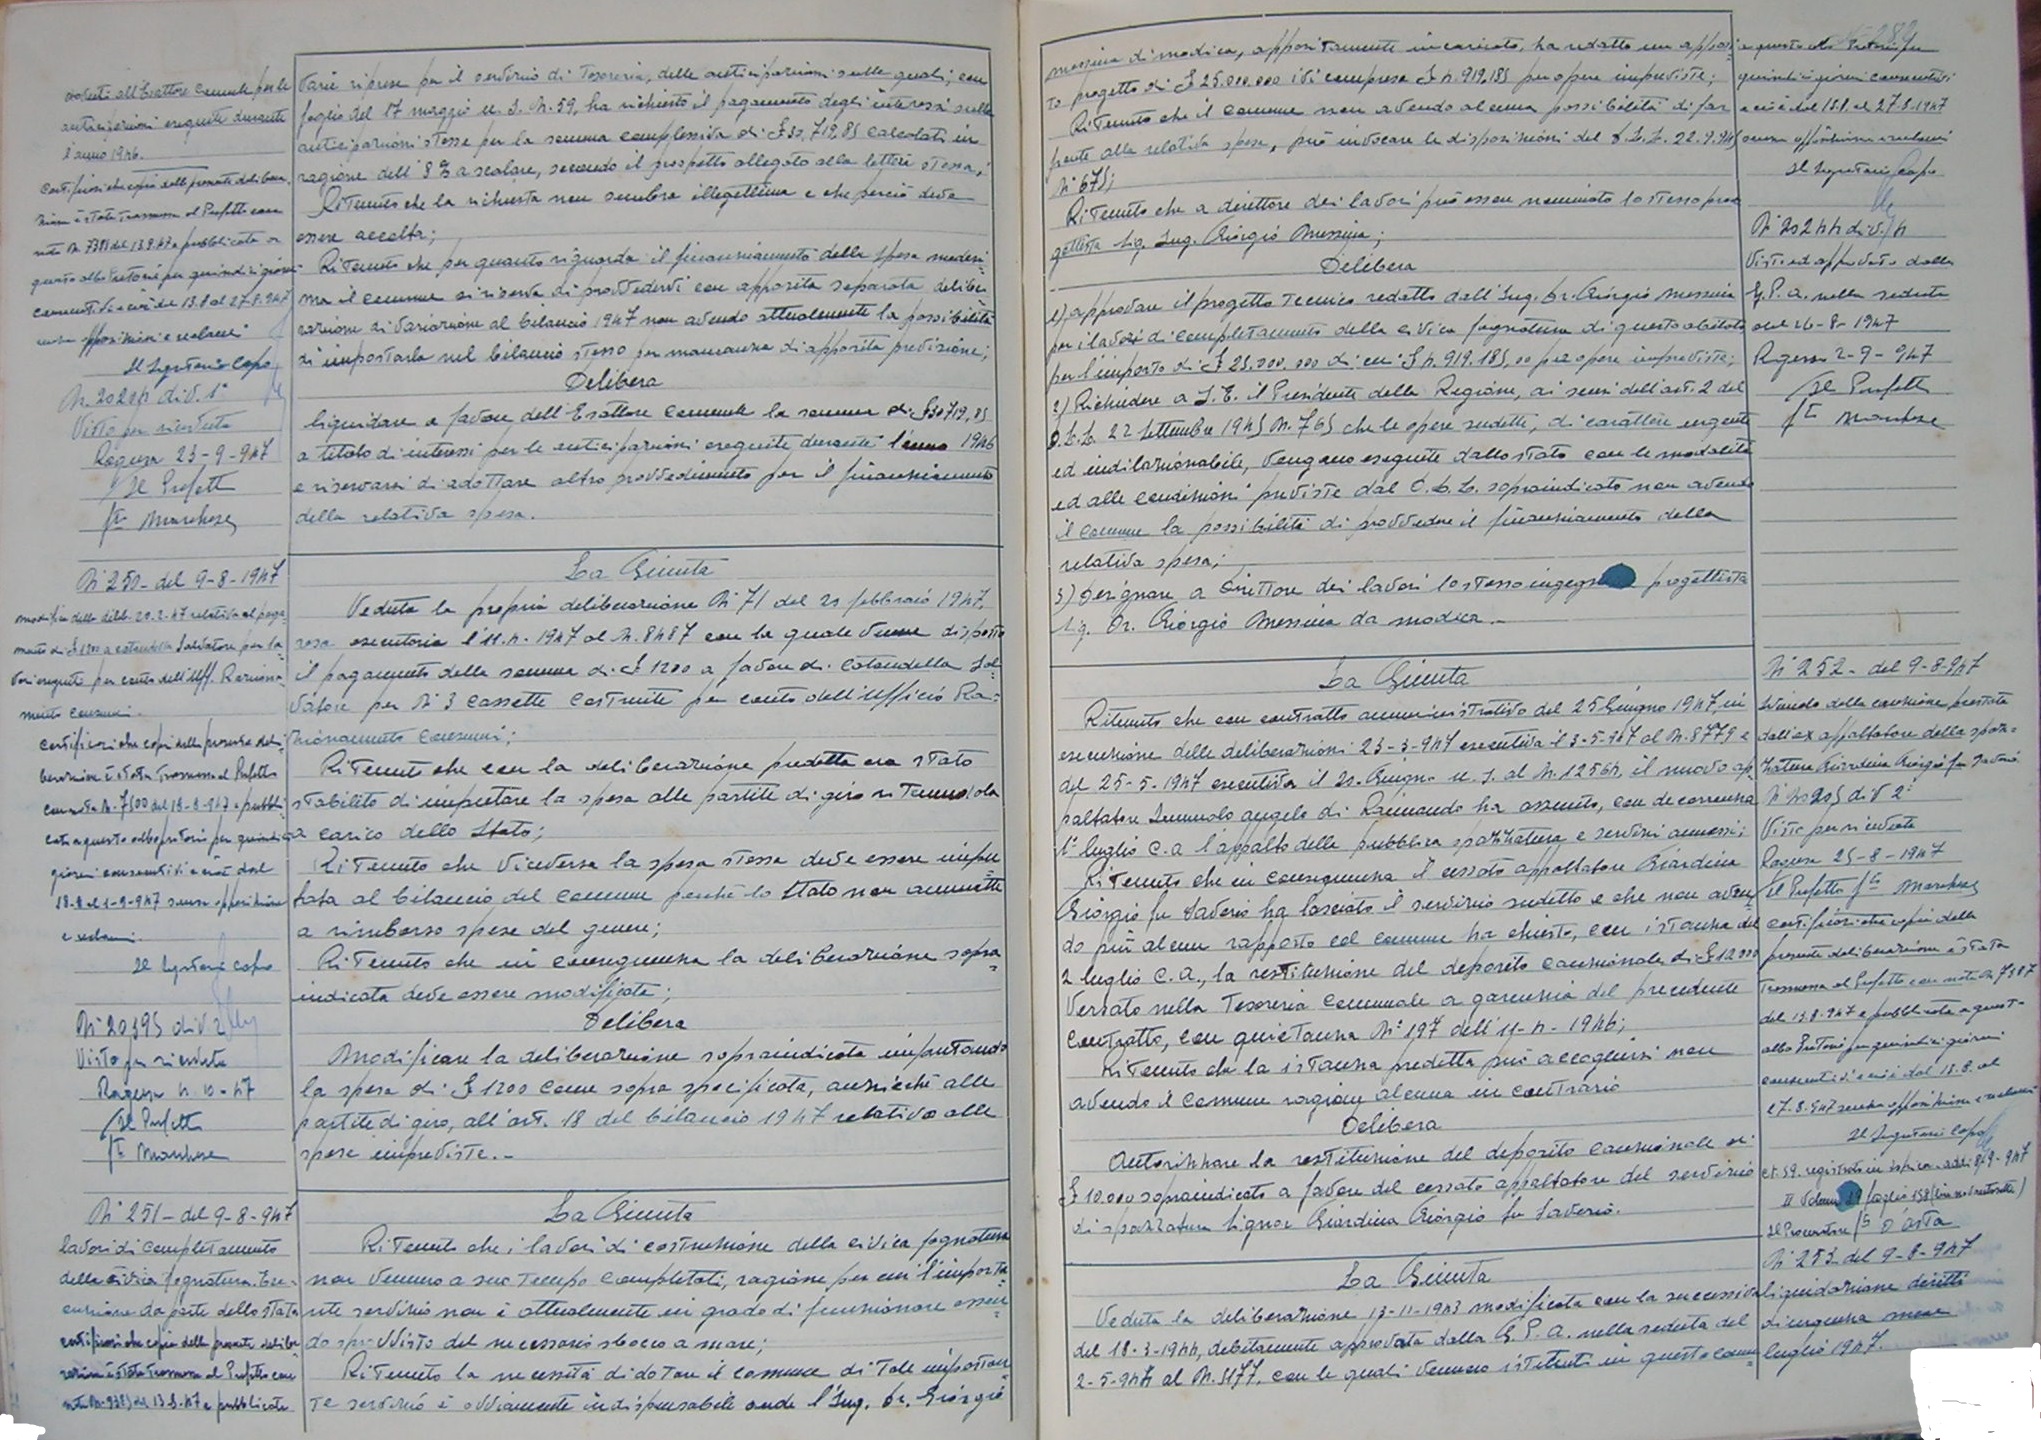 dovuti all'Esattore Comunale per le
anticipazioni eseguite durante
l'anno 1946.
Certificasi che copia della presente delibera-
zione è stata trasmessa al Prefetto con
nota N. 7385 del 13.8.47 e pubblicata a
questo albo Pretorio per quindici giorni
consecutivi e cioè dal 13.8 al 27.8.947
senza opposizioni e reclami
Il Segretario Capo
div. 1ª
Visto per ricevuta
Ragusa 23-9-947
Il Prefetto
fto Marchese
varie riprese per il servizio di Tesoreria, delle anticipazioni sulle quali, con
foglio del 17 maggio u. s. N. 59, ha richiesto il pagamento degli interessi sulle
anticipazioni stesse per la somma complessiva di £ 30.719,85 calcolati in
ragione dell'8% a scalare, secondo il prospetto allegato alla lettera stessa;
Ritenuto che la richiesta non sembra illegittima e che perciò deve
essere accolta;
Ritenuto che per quanto riguarda il finanziamento della spesa medesi-
ma il comune si riserva di provvedervi con apposita separata delibe-
razione di variazione al bilancio 1947 non avendo attualmente la possibilità
di impostarla nel bilancio stesso per mancanza di apposita previsione;
Delibera
liquidare a favore dell'Esattore Comunale la somma di £ 30719,85
a titolo di interessi per le anticipazioni eseguite durante l'anno 1946
e riservarsi di adottare altro provvedimento per il finanziamento
della relativa spesa.
N° 250 - del 9-8-1947
modifica della delib. 20-2-47 relativa al paga-
mento di £ 1200 a Catandella Salvatore per la-
vori eseguiti per conto dell'Uff. Raziona-
mento Consumi.
Certificasi che copia della presente deli-
berazione è stata trasmessa al Prefetto
con nota N. 7500 del 18-8-947 e pubbli-
cata a questo albo pretorio per quindici
giorni consecutivi e cioè dal
18.8 al 1-9-947 senza opposizioni
e reclami.
Il Segretario Capo
N° 20395 div. 2
Visto per ricevuta
Ragusa 4-10-47
Il Prefetto
fto Marchese
La Giunta
Veduta la propria deliberazione N° 71 del 20 febbraio 1947,
resa esecutoria l'11.4.1947 al N. 8487 con la quale venne disposto
il pagamento della somma di £ 1200 a favore di Catandella Sal-
vatore per N° 3 cassette costruite per conto dell'Ufficio Ra-
zionamento Consumi;
Ritenuto che con la deliberazione predetta era stato
stabilito di imputare la spesa alle partite di giro ritenendola
a carico dello Stato;
Ritenuto che viceversa la spesa stessa deve essere impu-
tata al bilancio del comune perchè lo Stato non ammette
a rimborso spese del genere;
Ritenuto che in conseguenza la deliberazione sopra-
indicata deve essere modificata;
Delibera
Modificare la deliberazione sopraindicata imputando
la spesa di £ 1200 come sopra specificata, anzicchè alle
partite di giro, all'art. 18 del bilancio 1947 relativo alle
spese impreviste.-
N° 251 - del 9-8-947
Lavori di completamento
della civica fognatura. Ese-
cuzione da parte dello Stato
Certificasi che copia della presente delibe-
razione è stata trasmessa al Prefetto con
nota N. 7385 del 13-8-47 e pubblicata
La Giunta
Ritenuto che i lavori di costruzione della civica fognatura
non vennero a suo tempo completati, ragione per cui l'importa-
nte servizio non è attualmente in grado di funzionare essen-
do sprovvisto del necessario sbocco a mare;
Ritenuto la necessità di dotare il comune di tale importan-
te servizio è ovviamente indispensabile onde l'Ing. Dr. Giorgio
289
Messina di Modica, appositamente incaricato, ha redatto un apposi-
to progetto di £ 25.000.000 ivi comprese £ 4.919.185 per opere impreviste;
Ritenuto che il comune non avendo alcuna possibilità di far
fronte alla relativa spesa, può invocare le disposizioni del D.L.L. 22.9.945
N° 675;
Ritenuto che a direttore dei lavori può essere nominato lo stesso pro-
gettista Sig. Ing. Giorgio Messina;
Delibera
1) approvare il progetto tecnico redatto dall'Ing. Dr. Giorgio Messina
per i lavori di completamento della civica fognatura di questo abitato
per l'importo di £ 25.000.000 di cui £ 4.919.185,00 per opere impreviste;
2) Richiedere a S. E. il Presidente della Regione, ai sensi dell'art. 2 del
D.L.L. 22 Settembre 1945 N. 765 che le opere sudette, di carattere urgente
ed indilazionabile, vengano eseguite dallo stato con le modalità
ed alle condizioni previste dal D.L.L. sopraindicato non avendo
il comune la possibilità di provvedere il finanziamento della
relativa spesa;
3) Designare a Direttore dei lavori lo stesso progettista
Sig. Dr. Giorgio Messina da Modica.-
a questo albo Pretorio per
quindici giorni consecutivi
e cioè dal 13.8 al 27.8-1947
senza opposizioni e reclami
Il Segretario Capo
N° 20244 div. 4
Visto ed approvato dalla
G. P. A. nella seduta
del 26-8-1947
Ragusa 2-9-947
Il Prefetto
fto Marchese
La Giunta
Ritenuto che con contratto amministrativo del 25 Giugno 1947, in
esecuzione delle deliberazioni 23-3-947 esecutiva il 3-5-947 al N. 8779 e
del 25-5-1947 esecutiva il 20 Giugno u. s. al N. 12564, il nuovo ap-
paltatore Angelo di Raimondo ha assunto, con decorrenza
1° luglio c.a l'appalto della pubblica spazzatura e servizi annessi;
Ritenuto che in conseguenza il cessato appaltatore Giardina
Giorgio fu Saverio ha lasciato il servizio sudetto e che non aven-
do più alcun rapporto col comune ha chiesto, con istanza del
2 luglio c.a., la restituzione del deposito cauzionale di £ 10.000
versato nella Tesoreria Comunale a garanzia del precedente
contratto, con quietanza N° 197 dell'11-4-1946;
Ritenuto che la istanza predetta può accogliersi non
avendo il comune ragioni alcuna in contrario
Delibera
Autorizzare la restituzione del deposito cauzionale di
£ 10.000 sopraindicato a favore del cessato appaltatore del servizio
di spazzatura Signor Giardina Giorgio fu Saverio.
N° 252 - del 9-8-947
Svincolo della cauzione prestata
dall'ex appaltatore della spaz-
zatura Giardina Giorgio fu Saverio
N° 20205 div 2ª
Visto per ricevuta
Ragusa 25-8-1947
Il Prefetto fto Marchese
Certificasi che copia della
presente deliberazione è stata
trasmessa al Prefetto con nota N. 7387
del 13.8.947 e pubblicata a questo
albo Pretorio per quindici giorni
consecutivi e cioè dal 13.8. al
27.8.947 senza opposizioni e reclami
Il Segretario Capo
registrata in addì 8-9-947
II Volume foglio 158
Il Procuratore fto D'Asta
La Giunta
Veduta la deliberazione 13-11-1943 modificata con la successiva
del 18-3-1944, debitamente approvata dalla G. P. A. nella seduta del
2-5-944 al N. 5177, con le quali vennero istituiti in questo comu-
N° 253 del 9-8-947
liquidazione diritti
d'urgenza mese
luglio 1947.